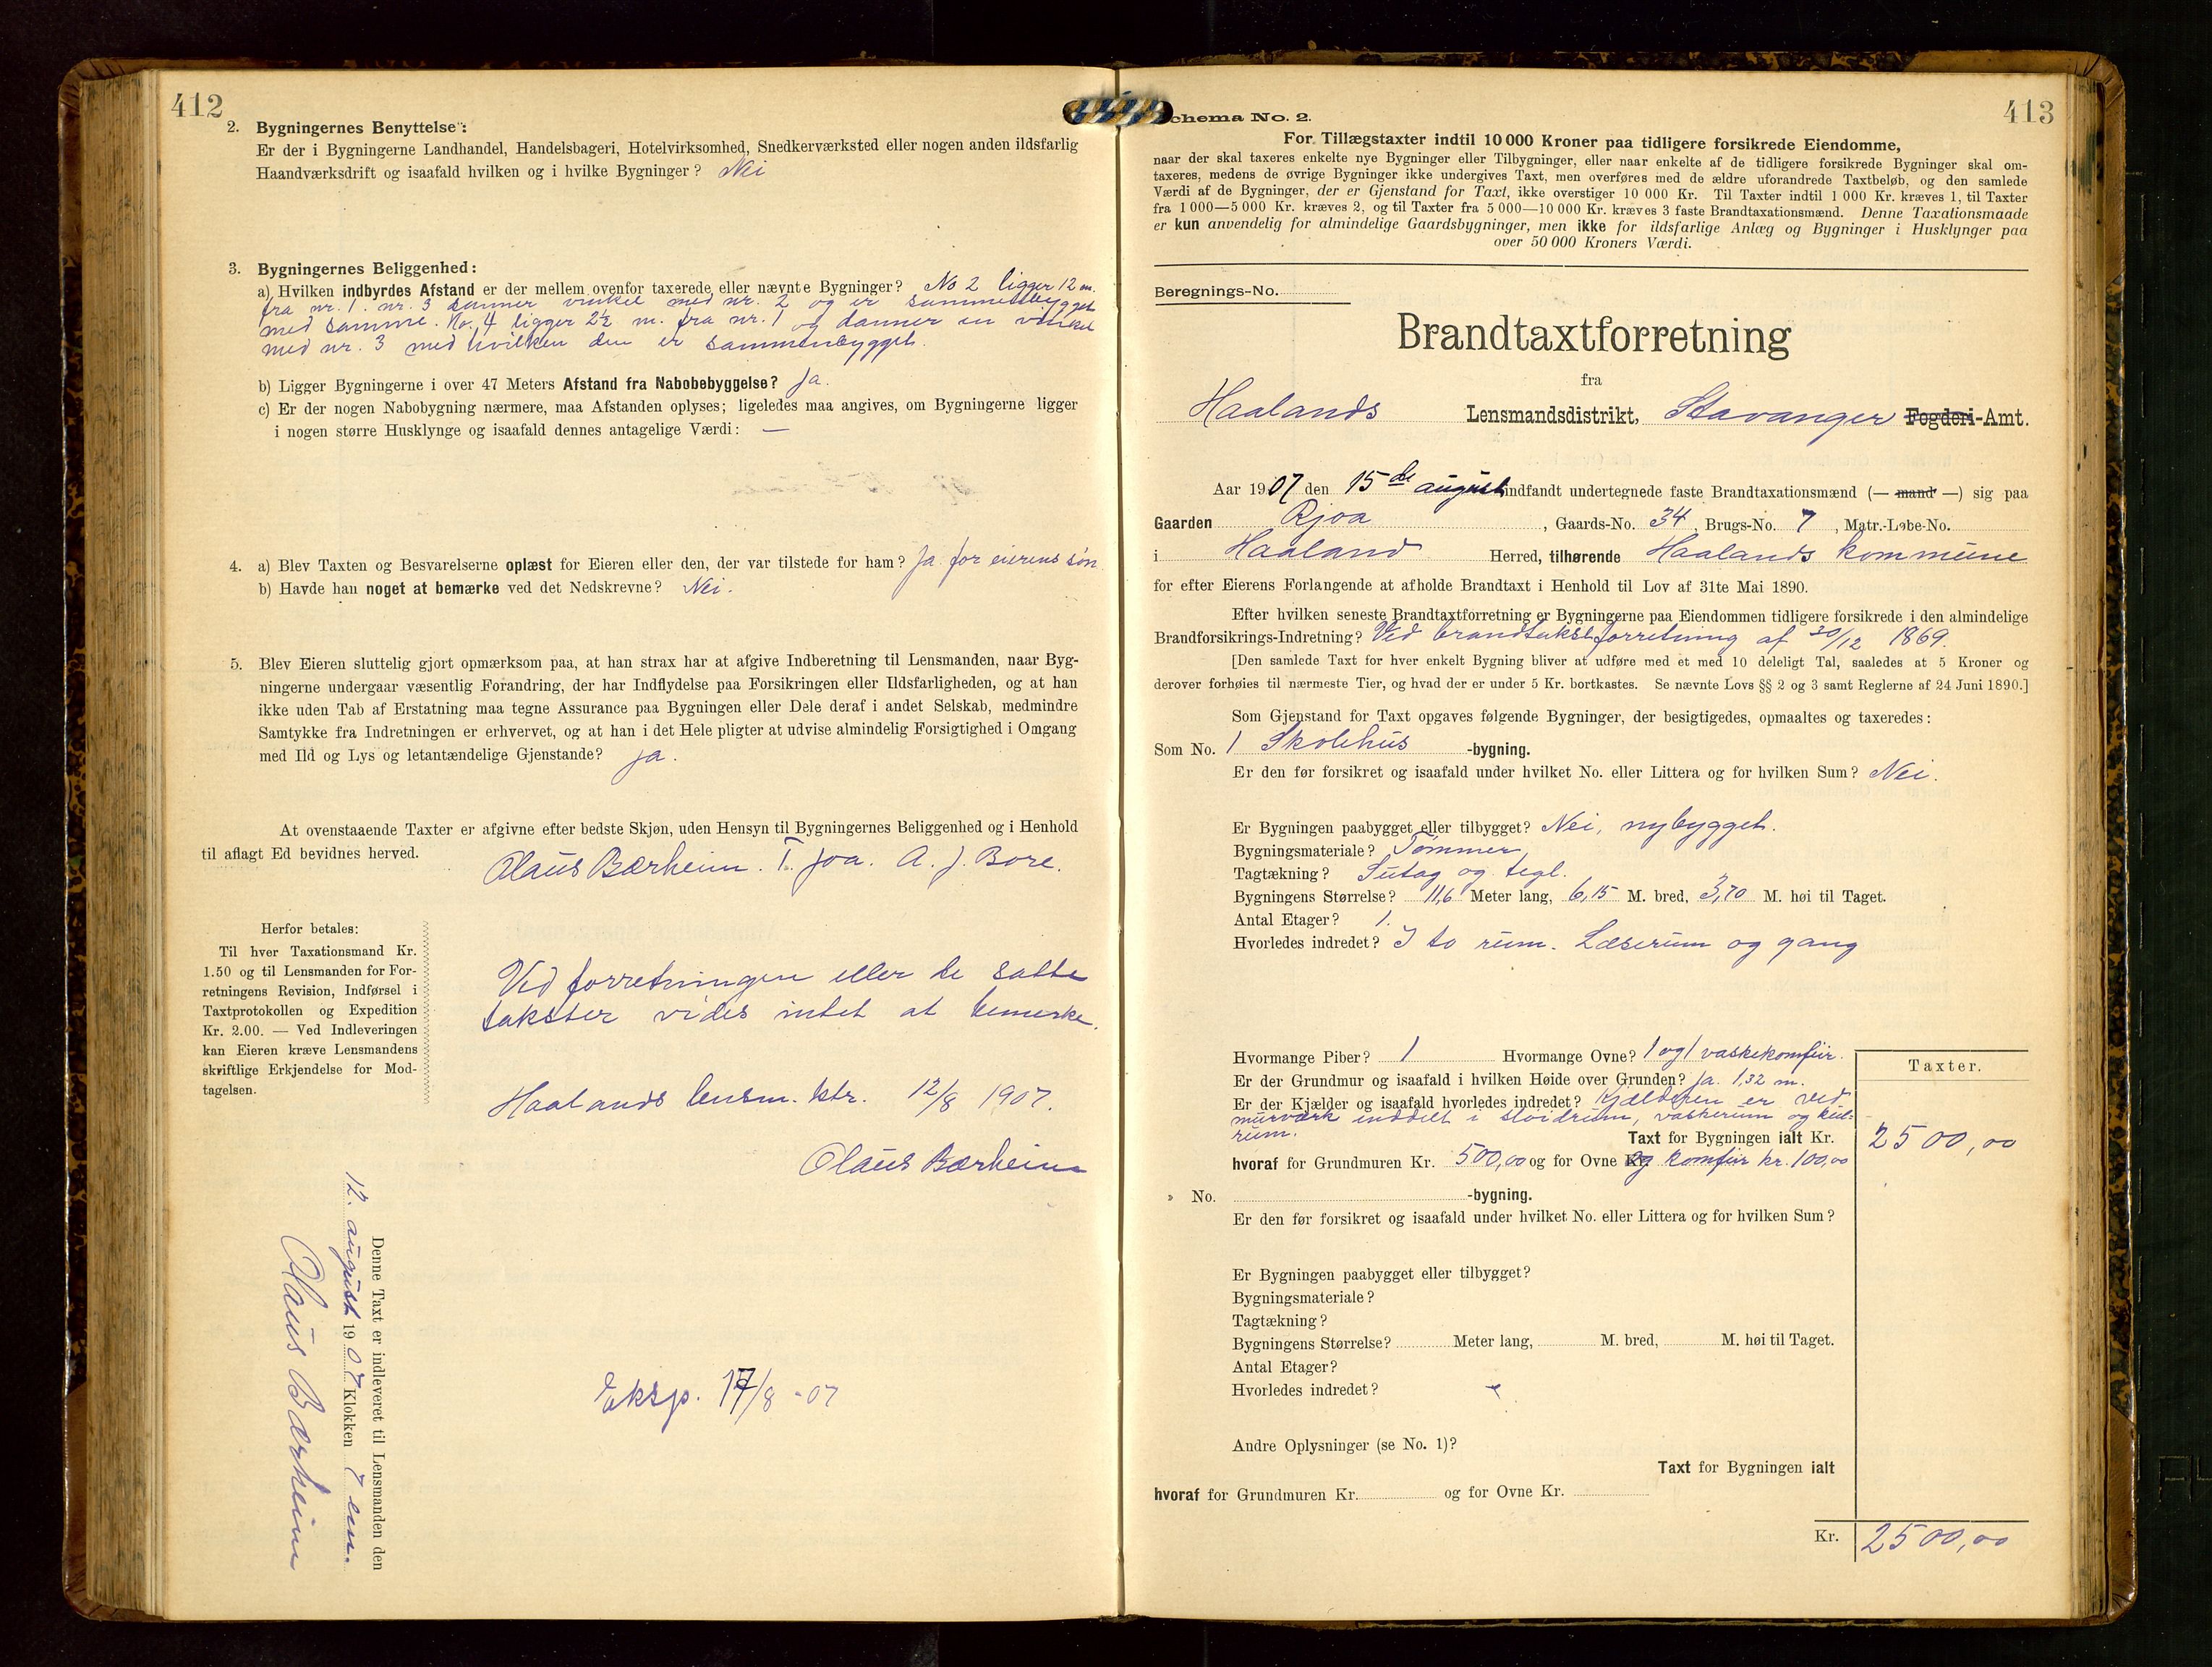 412
2. Bygningernes Benyttelse:
Er der i Bygningerne Landhandel, Handelsbageri, Hotelvirksomhed, Snedkerværksted eller nogen anden ildsfarlig
Haandværksdrift og isaafald hvilken og i hvilke Bygninger? Nei
3. Bygningernes Beliggenhed:
a) Hvilken indbyrdes Afstand er der mellem ovenfor taxerede eller nævnte Bygninger? No 2 ligger 12 m.
fra nr. 1. nr. 3 danner vinkel med nr. 2 og er sammenbygget
med samme. No. 4 ligger 2½ m. fra nr. 1 og danner en vinkel
med nr. 3 med hvilken den er sammenbygget.
b) Ligger Bygningerne i over 47 Meters Afstand fra Nabobebyggelse? Ja.
c) Er der nogen Nabobygning nærmere, maa Afstanden oplyses; ligeledes maa angives, om Bygningerne ligger
i nogen større Husklynge og isaafald dennes antagelige Værdi: —
4. a) Blev Taxten og Besvarelserne oplæst for Eieren eller den, der var tilstede for ham? Ja for eierens søn
b) Havde han noget at bemærke ved det Nedskrevne? Nei.
5. Blev Eieren sluttelig gjort opmærksom paa, at han strax har at afgive Indberetning til Lensmanden, naar Byg-
ningerne undergaar væsentlig Forandring, der har Indflydelse paa Forsikringen eller Ildsfarligheden, og at han
ikke uden Tab af Erstatning maa tegne Assurance paa Bygningen eller Dele deraf i andet Selskab, medmindre
Samtykke fra Indretningen er erhvervet, og at han i det Hele pligter at udvise almindelig Forsigtighed i Omgang
med Ild og Lys og letantændelige Gjenstande? ja.
At ovenstaaende Taxter er afgivne efter bedste Skjøn, uden Hensyn til Bygningernes Beliggenhed og i Henhold
til aflagt Ed bevidnes herved.
Olaus Bærheim. T. Joa. A. J. Bore.
Herfor betales:
Til hver Taxationsmand Kr.
1.50 og til Lensmanden for For-
retningens Revision, Indførsel i
Taxtprotokollen og Expedition
Kr. 2.00. — Ved Indleveringen
kan Eieren kræve Lensmandens
skriftlige Erkjendelse for Mod-
tagelsen.
Ved forretningen eller de satte
takster vides intet at bemerke.
Haalands lensm. ktr. 12/8 1907.
Olaus Bærheim
Denne Taxt er indleveret til Lensmanden den
12. august 1907 Klokken 7 em.
Olaus Bærheim
Eksp. 17/8 -07
413
Schema No. 2.
For Tillægstaxter indtil 10 000 Kroner paa tidligere forsikrede Eiendomme,
naar der skal taxeres enkelte nye Bygninger eller Tilbygninger, eller naar enkelte af de tidligere forsikrede Bygninger skal om-
taxeres, medens de øvrige Bygninger ikke undergives Taxt, men overføres med de ældre uforandrede Taxtbeløb, og den samlede
Værdi af de Bygninger, der er Gjenstand for Taxt, ikke overstiger 10 000 Kr. Til Taxter indtil 1 000 Kr. kræves 1, til Taxter
fra 1 000—5 000 Kr. kræves 2, og til Taxter fra 5 000—10 000 Kr. kræves 3 faste Brandtaxationsmænd. Denne Taxationsmaade
er kun anvendelig for almindelige Gaardsbygninger, men ikke for ildsfarlige Anlæg og Bygninger i Husklynger paa
over 50 000 Kroners Værdi.
Beregnings-No.
Brandtaxtforretning
fra
Haalands Lensmandsdistrikt, Stavanger Fogderi-Amt.
Aar 1907 den 15de august indfandt undertegnede faste Brandtaxationsmænd (— mand —) sig paa
Gaarden Rjoa, Gaards-No. 34, Brugs-No. 7, Matr.-Løbe-No.
i Haaland Herred, tilhørende Haalands kommune
for efter Eierens Forlangende at afholde Brandtaxt i Henhold til Lov af 31te Mai 1890.
Efter hvilken seneste Brandtaxtforretning er Bygningerne paa Eiendommen tidligere forsikrede i den almindelige
Brandforsikrings-Indretning? Ved brandtakstforretning af 20/12 1869.
[Den samlede Taxt for hver enkelt Bygning bliver at udføre med et med 10 deleligt Tal, saaledes at 5 Kroner og
derover forhøies til nærmeste Tier, og hvad der er under 5 Kr. bortkastes. Se nævnte Lovs §§ 2 og 3 samt Reglerne af 24 Juni 1890.]
Som Gjenstand for Taxt opgaves følgende Bygninger, der besigtigedes, opmaaltes og taxeredes:
Som No. 1 Skolehus -bygning.
Er den før forsikret og isaafald under hvilket No. eller Littera og for hvilken Sum? Nei.
Er Bygningen paabygget eller tilbygget? Nei, nybygget.
Bygningsmateriale? Tømmer
Tagtækning? Sutag og tegl.
Bygningens Størrelse? 11,6 Meter lang, 6,15 M. bred, 3,70 M. høi til Taget.
Antal Etager? 1.
Hvorledes indredet? I to rum. Læserum og gang
Hvormange Piber? 1 Hvormange Ovne? 1 og 1 vaskekomfur.
Er der Grundmur og isaafald i hvilken Høide over Grunden? Ja. 1,32 m.
Er der Kjælder og isaafald hvorledes indredet? Kjælderen er ved
murværk inddelt i sløidrum, vaskerum og kul-
rum.
Taxter.
Taxt for Bygningen ialt Kr. 2500,00
hvoraf for Grundmuren Kr. 500,00 og for Ovne Kr. og komfur kr. 100,00
» No. -bygning.
Er den før forsikret og isaafald under hvilket No. eller Littera og for hvilken Sum?
Er Bygningen paabygget eller tilbygget?
Bygningsmateriale?
Tagtækning?
Bygningens Størrelse? Meter lang, M. bred, M. høi til Taget.
Antal Etager?
Hvorledes indredet?
Andre Oplysninger (se No. 1)?
Taxt for Bygningen ialt
hvoraf for Grundmuren Kr. og for Ovne Kr.
Kr. 2500,00